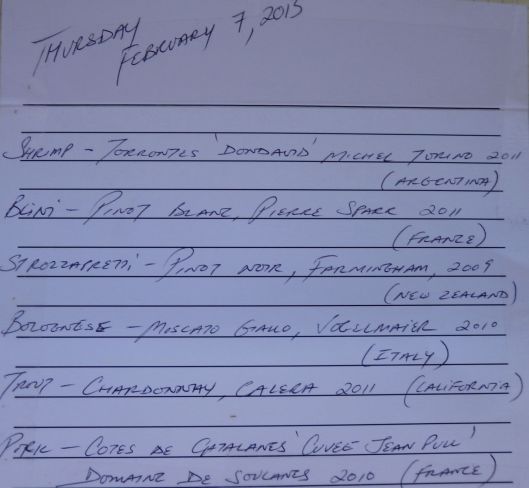 THURSDAY
FEBRUARY 7, 2013
SHRIMP - TORRONTES 'DONDAVID' MICHEL TORINO 2011
(ARGENTINA)
BLINI - PINOT BLANC, PIERRE SPARR 2011
(FRANCE)
STROZZAPRETTI - PINOT NOIR, FARMINGHAM, 2009
(NEW ZEALAND)
BOLOGNESE - MOSCATO GIALLO, 2010
(ITALY)
TROUT - CHARDONNAY, CALERA 2011 (CALIFORNIA)
PORK - COTES DE CATALANES 'CUVEE JEAN PULL'
DOMAINE DE SOULANES 2010 (FRANCE)